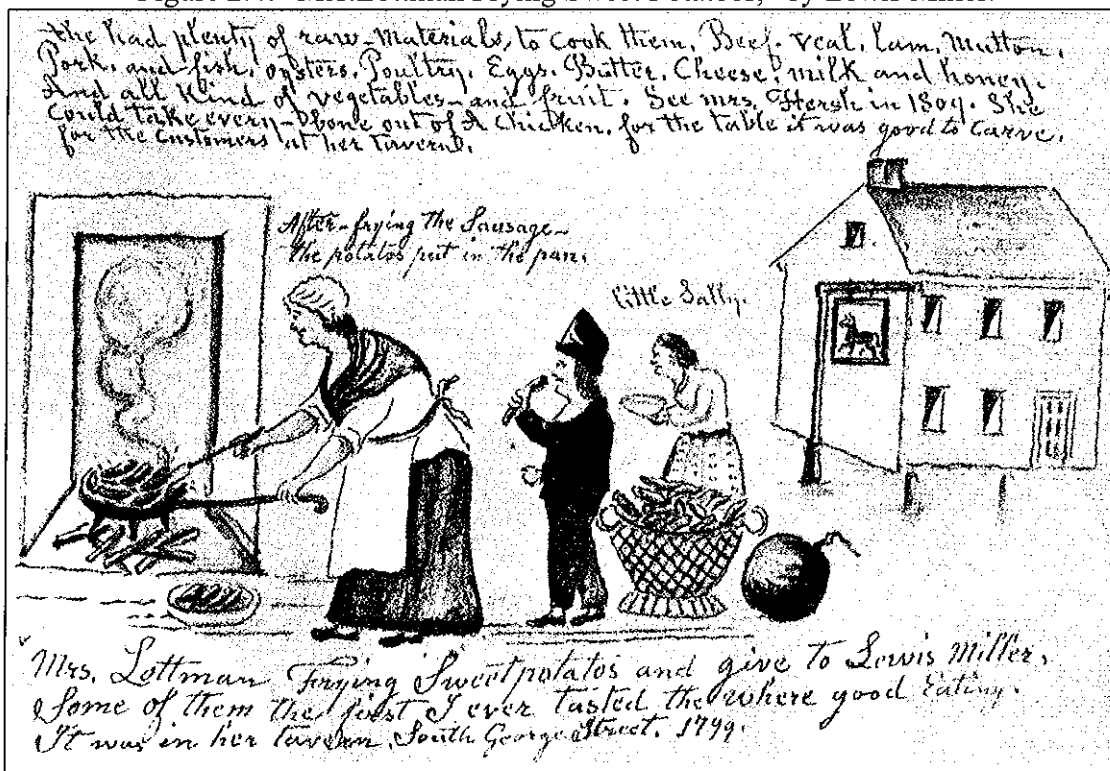 the had plenty of raw materials, to Cook them, Beef. Veal. Lam. Mutton.
Pork. and fish, oysters. Poultry. Eggs. Butter. Cheese. milk and honey.
And all Kind of vegetables and fruit. See mrs. Hersh in 1809. She
Could take every bone out of A Chicken. for the table it was good to Carve.
for the Customers at her tavern.
After frying the Sausage
the potatos put in the pan.
little Sally.
Mrs. Lottman Frying Sweetpotatos and give to Lewis Miller,
Some of them the first I ever tasted the where good Eating.
It was in her tavern, South George Street. 1799.